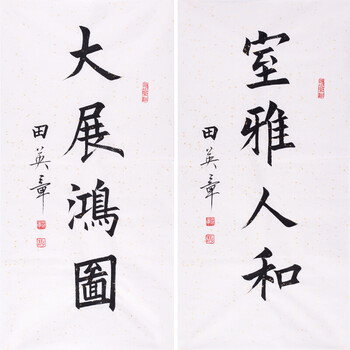 大展鴻圖
田英章
室雅人和
田英章